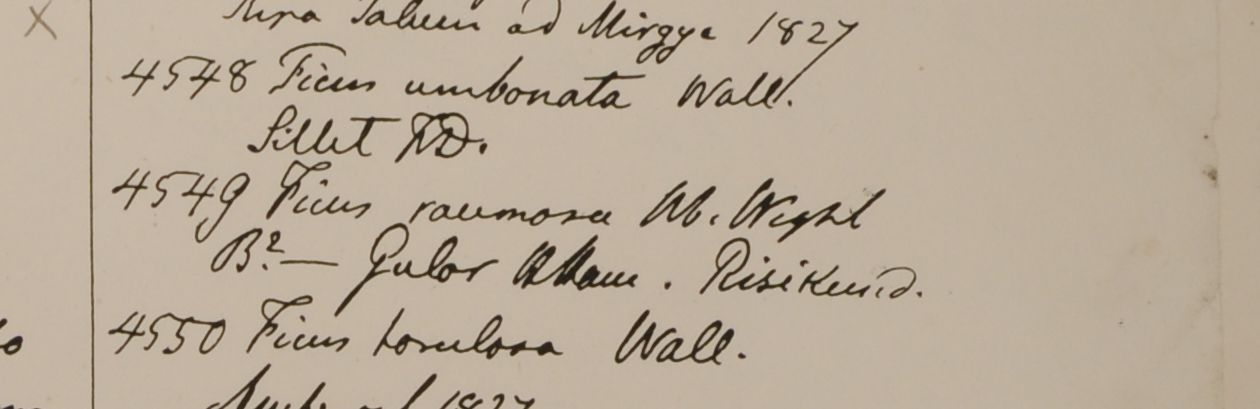 ad Mirgye 1827
4548 Ficus umbonata Wall.
Sillet FD.
4549 Ficus racemosa Wight
B? — Gulor Risikund.
4550 Ficus torulosa Wall.
1827